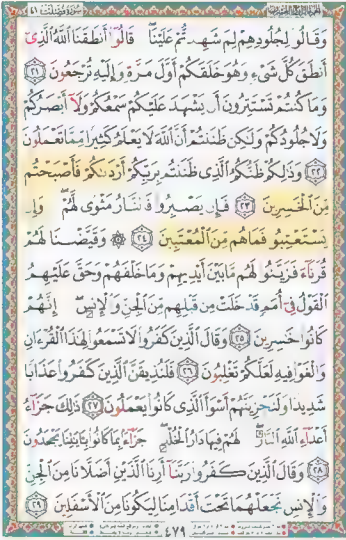 سورة فصلت ٤١
وَقَالُوا لِجُلُودِهِمْ لِمَ شَهِدتُّمْ عَلَيْنَا قَالُوا أَنطَقَنَا اللَّهُ الَّذِي
أَنطَقَ كُلَّ شَيْءٍ وَهُوَ خَلَقَكُمْ أَوَّلَ مَرَّةٍ وَإِلَيْهِ تُرْجَعُونَ ٢١
وَمَا كُنتُمْ تَسْتَتِرُونَ أَن يَشْهَدَ عَلَيْكُمْ سَمْعُكُمْ وَلَا أَبْصَارُكُمْ
وَلَا جُلُودُكُمْ وَلَكِن ظَنَنتُمْ أَنَّ اللَّهَ لَا يَعْلَمُ كَثِيرًا مِّمَّا تَعْمَلُونَ
٢٢ وَذَلِكُمْ ظَنُّكُمُ الَّذِي ظَنَنتُم بِرَبِّكُمْ أَرْدَاكُمْ فَأَصْبَحْتُم
مِّنَ الْخَاسِرِينَ ٢٣ فَإِن يَصْبِرُوا فَالنَّارُ مَثْوًى لَّهُمْ وَإِن
يَسْتَعْتِبُوا فَمَا هُم مِّنَ الْمُعْتَبِينَ ٢٤ ۞ وَقَيَّضْنَا لَهُمْ
قُرَنَاءَ فَزَيَّنُوا لَهُم مَّا بَيْنَ أَيْدِيهِمْ وَمَا خَلْفَهُمْ وَحَقَّ عَلَيْهِمُ
الْقَوْلُ فِي أُمَمٍ قَدْ خَلَتْ مِن قَبْلِهِم مِّنَ الْجِنِّ وَالْإِنسِ إِنَّهُمْ
كَانُوا خَاسِرِينَ ٢٥ وَقَالَ الَّذِينَ كَفَرُوا لَا تَسْمَعُوا لِهَذَا الْقُرْءَانِ
وَالْغَوْا فِيهِ لَعَلَّكُمْ تَغْلِبُونَ ٢٦ فَلَنُذِيقَنَّ الَّذِينَ كَفَرُوا عَذَابًا
شَدِيدًا وَلَنَجْزِيَنَّهُمْ أَسْوَأَ الَّذِي كَانُوا يَعْمَلُونَ ٢٧ ذَلِكَ جَزَاءُ
أَعْدَاءِ اللَّهِ النَّارُ لَهُمْ فِيهَا دَارُ الْخُلْدِ جَزَاءً بِمَا كَانُوا بِآيَاتِنَا يَجْحَدُونَ
٢٨ وَقَالَ الَّذِينَ كَفَرُوا رَبَّنَا أَرِنَا الَّذَيْنِ أَضَلَّانَا مِنَ الْجِنِّ
وَالْإِنسِ نَجْعَلْهُمَا تَحْتَ أَقْدَامِنَا لِيَكُونَا مِنَ الْأَسْفَلِينَ ٢٩
٤٧٩